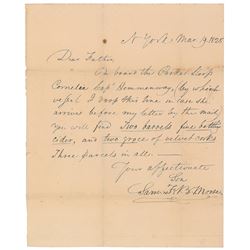 N York Mar. 19. 1825
Dear Father
On board the Packet Sloop
Cornelia Capt Hemmenway, (by which
vessel I drop this line in case she
arrives before my letter by the mail,)
you will find two barrels fine bottled
cider, and two groce of velvet corks
Three parcels in all.
Your affectionate
Son
Saml. F. B. Morse